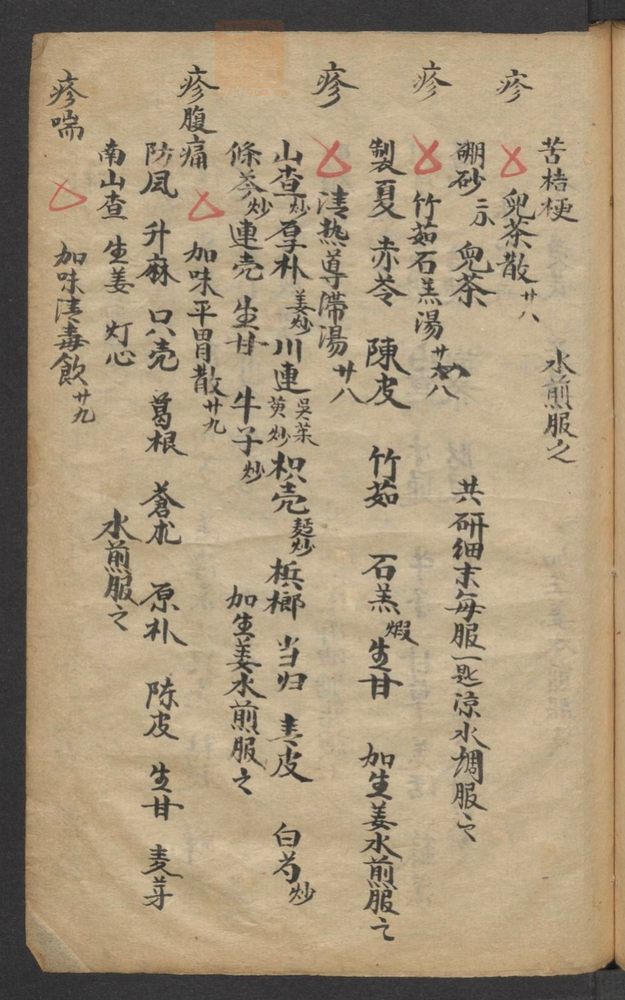 苦桔梗 水煎服之
疹 兒茶散 廿八
硼砂 二水 兒茶 共研細末每服一匙涼水調服之
疹 竹茹石羔湯 廿八
製夏 赤苓 陳皮 竹茹 石羔煅 生甘 加生姜水煎服之
疹 清熱導滯湯 廿八
山查炒 厚朴姜炒 川連吳茱萸炒 枳壳麩炒 檳榔 当归 青皮 白芍炒
條芩炒 連壳 生甘 牛子炒 加生姜水煎服之
疹腹痛 加味平胃散 廿九
防風 升麻 只壳 葛根 蒼朮 原朴 陈皮 生甘 麦芽
南山查 生姜 灯心 水煎服之
疹喘 加味清毒飲 廿九